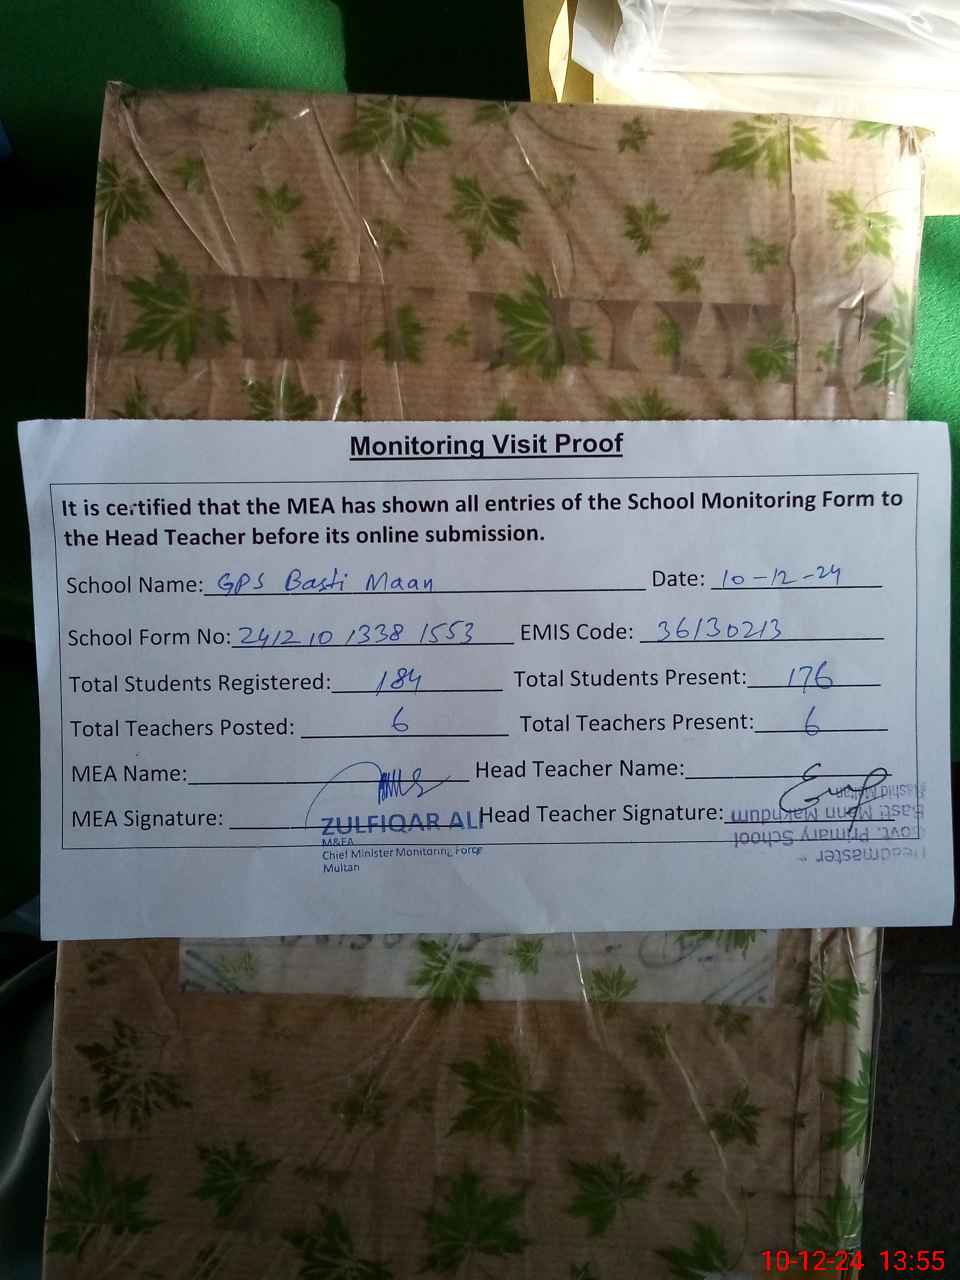 Monitoring Visit Proof
It is certified that the MEA has shown all entries of the School Monitoring Form to
the Head Teacher before its online submission.
School Name: GPS Basti Maan Date: 10-12-24
School Form No: 241210 1338 1553 EMIS Code: 36130213
Total Students Registered: 184 Total Students Present: 176
Total Teachers Posted: 6 Total Teachers Present: 6
MEA Name: Head Teacher Name:
MEA Signature: Head Teacher Signature:
ZULFIQAR ALI
M&EA
Chief Minister Monitoring Force
Multan
Headmaster
Govt. Primary School
Basti Mann Makhdum
Rashid Multan
10-12-24 13:55